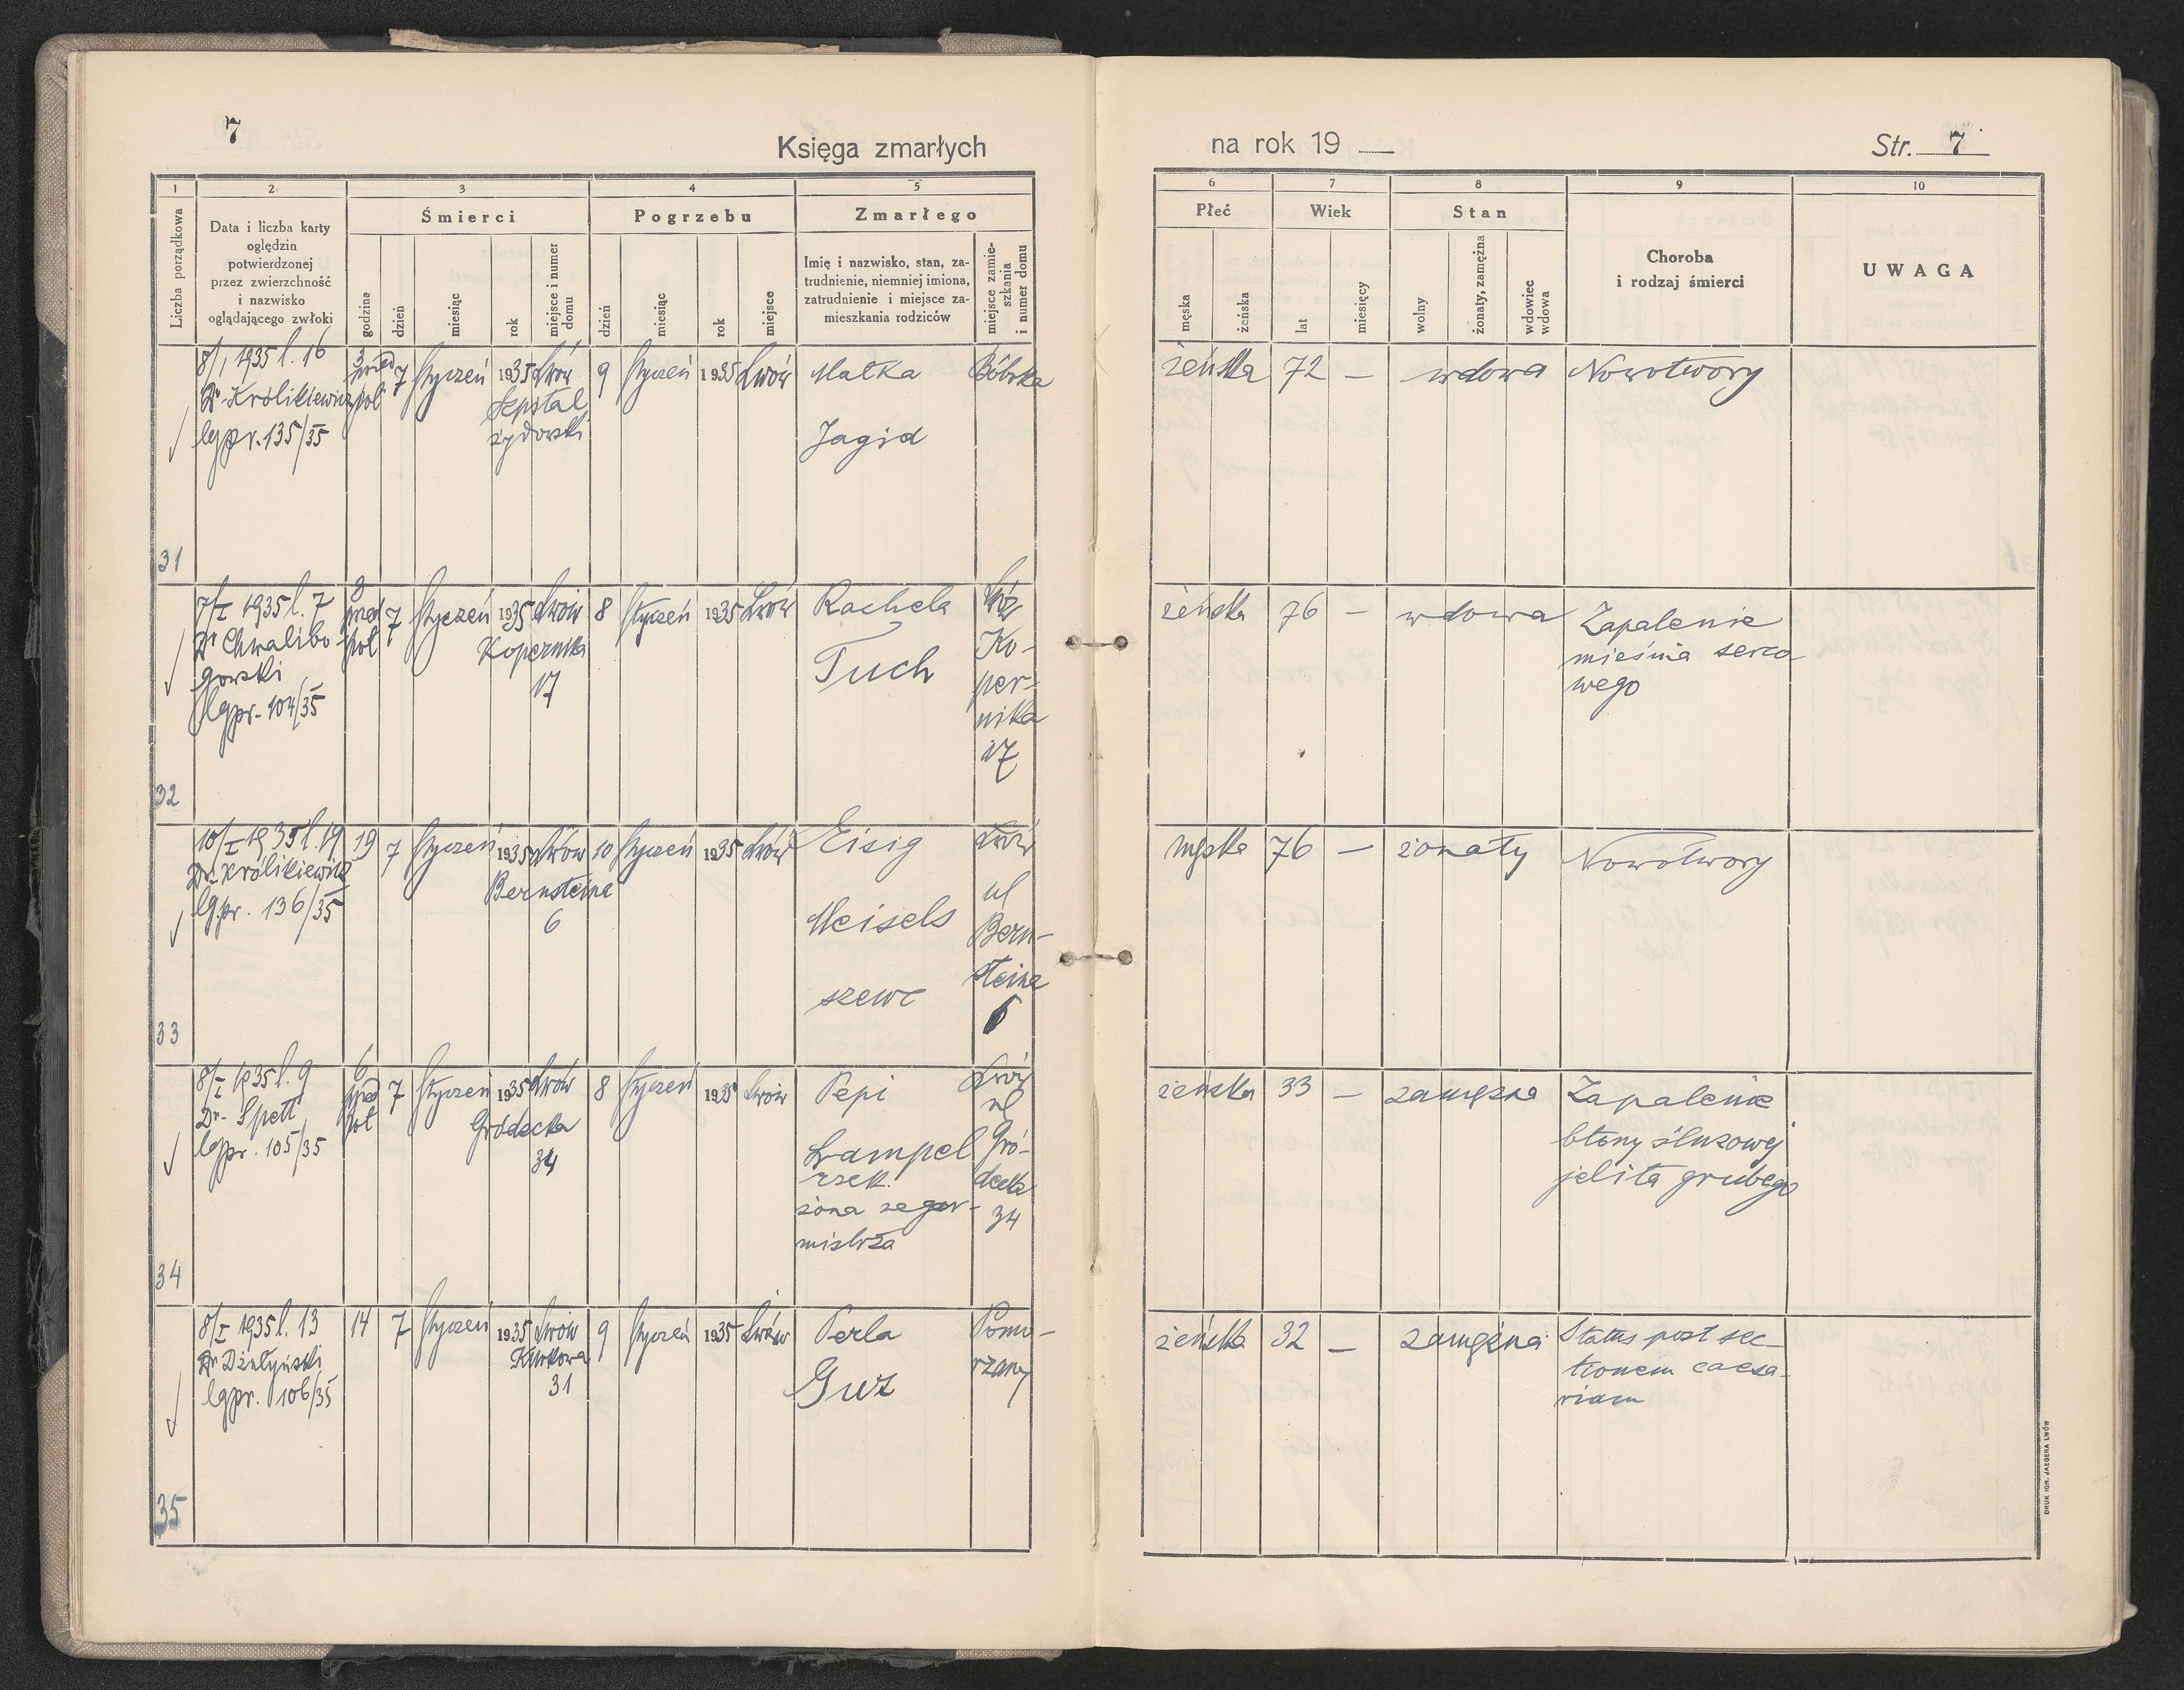 7
Księga zmarłych
na rok 19
Str. 7
1 2 3 4 5
Śmierci Pogrzebu Zmarłego
Liczba porządkowa
Data i liczba karty
oględzin
potwierdzonej
przez zwierzchność
i nazwisko
oglądającego zwłoki
godzina
dzień
miesiąc
rok
miejsce i numer
domu
dzień
miesiąc
rok
miejsce
Imię i nazwisko, stan, za-
trudnienie, niemniej imiona,
zatrudnienie i miejsce za-
mieszkania rodziców
miejsce zamie-
szkania
i numer domu
6 7 8 9 10
Płeć Wiek Stan
męska
żeńska
lat
miesięcy
wolny
żonaty, zamężna
wdowiec
wdowa
Choroba
i rodzaj śmierci
UWAGA
31
8/I 1935 l. 16
Dr Królikiewicz
lgpr. 135/35
3
przed
poł
7
Styczeń
1935
Lwów
Szpital
żydowski
9
Styczeń
1935
Lwów
Malka
Jagid
Bóbrka
żeńska
72
—
wdowa
Nowotwory
32
7/I 1935 l. 7
Dr Chwalibo-
gowski
lgpr. 104/35
3
przed
poł
7
Styczeń
1935
Lwów
Kopernika
17
8
Styczeń
1935
Lwów
Rachela
Tuch
Lwów
Ko-
per-
nika
17
żeńska
76
—
wdowa
Zapalenie
mieśnia serco
wego
33
10/I 1935 l. 19
Dr. Królikiewicz
lgpr. 136/35
19
7
Styczeń
1935
Lwów
Bernsteina
6
10
Styczeń
1935
Lwów
Eisig
Meisels
szewc
Lwów
ul
Bern-
steina
6
męska
76
—
żonaty
Nowotwory
34
8/I 1935 l. 9
Dr. Spett
lgpr. 105/35
6
przed
poł
7
Styczeń
1935
Lwów
Gródecka
34
8
Styczeń
1935
Lwów
Pepi
Lampel
rzek.
żona zegar-
mistrza
Lwów
ul
Gró-
decka
34
żeńska
33
—
zamężna
Zapalenie
błony śluzowej
jelita grubego
35
8/I 1935 l. 13
Dr Dżułyński
lgpr. 106/35
14
7
Styczeń
1935
Lwów
Kurkowa
31
9
Styczeń
1935
Lwów
Perla
Guz
Pomo-
rzany
żeńska
32
—
zamężna
Status post sec-
tionem caesa-
riam
DRUK IGN. JAEGERA LWÓW